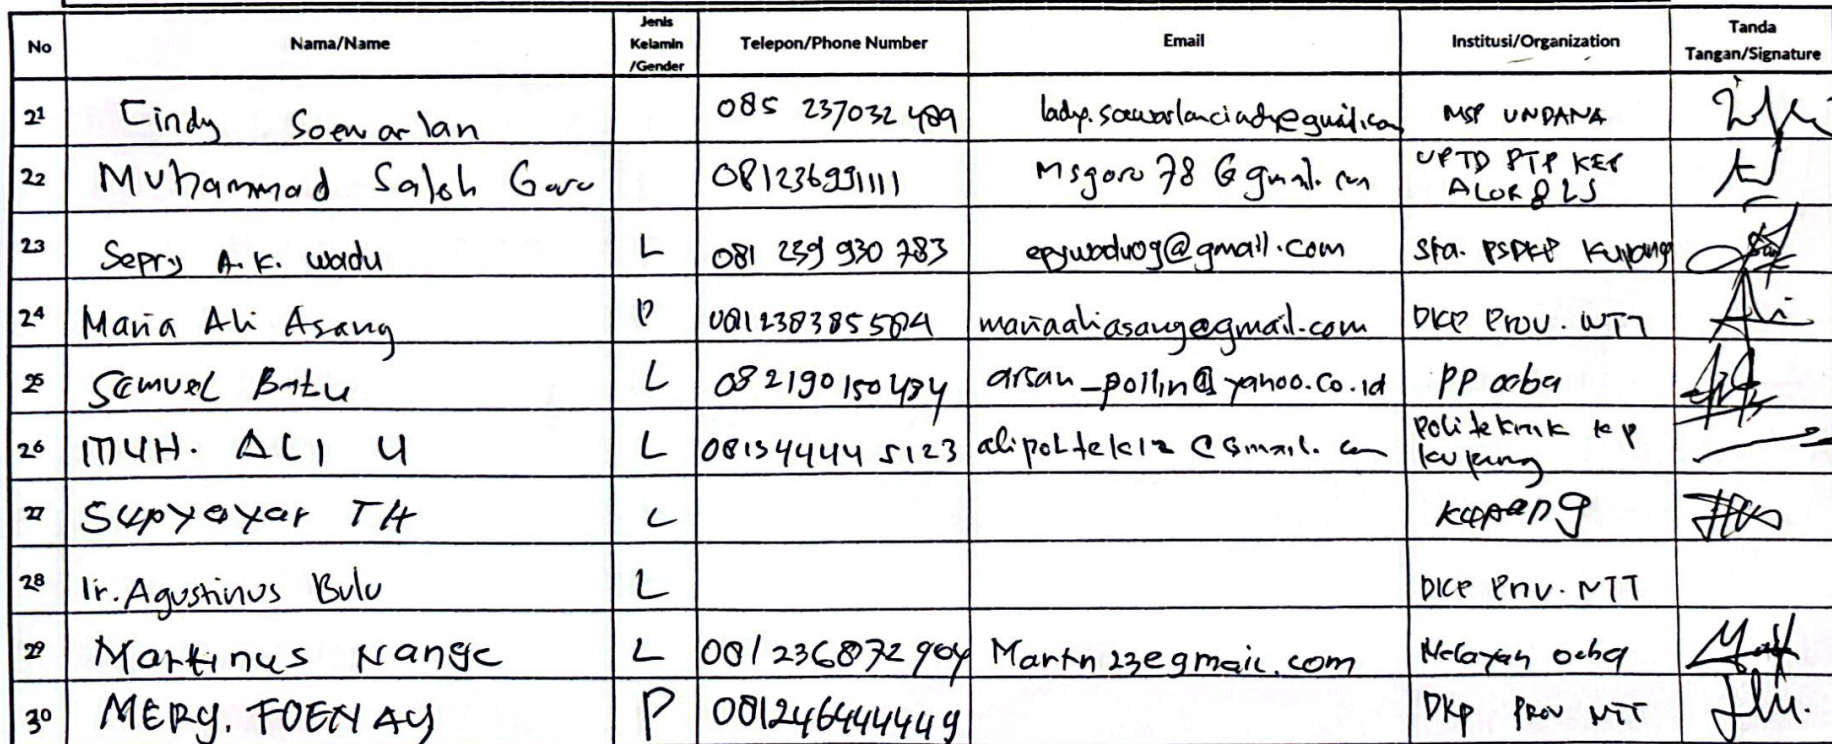 No | Nama/Name | Jenis Kelamin /Gender | Telepon/Phone Number | Email | Institusi/Organization | Tanda Tangan/Signature
21 | Cindy Soewarlan | | 085 237032489 | | MSP UNDANA
22 | Muhammad Saleh Goro | | 081236991111 | msgoro78@gmail.com | UPTD PTP KEP ALOR & LS
23 | Sepry A.K. Wadu | L | 081 239 930 783 | epywaduog@gmail.com | Sta. PSDKP Kupang
24 | Maria Ali Asang | P | 081238385584 | mariaaliasang@gmail.com | DKP Prov. NTT
25 | Samuel Batu | L | 082190150434 | arsan_pollin@yahoo.co.id | PP oeba
26 | MUH. ALI U | L | 081344445123 | alipoltek12@gmail.com | Politeknik kp kupang
27 | Supyayar TH | L | | | Kupang
28 | Ir. Agustinus Bulu | L | | | DKP Prov. NTT
29 | Martinus Nange | L | 081236872904 | Martn23@gmail.com | Nelayan oeba
30 | MERY. FOENAY | P | 081246444449 | | DKP Prov NTT